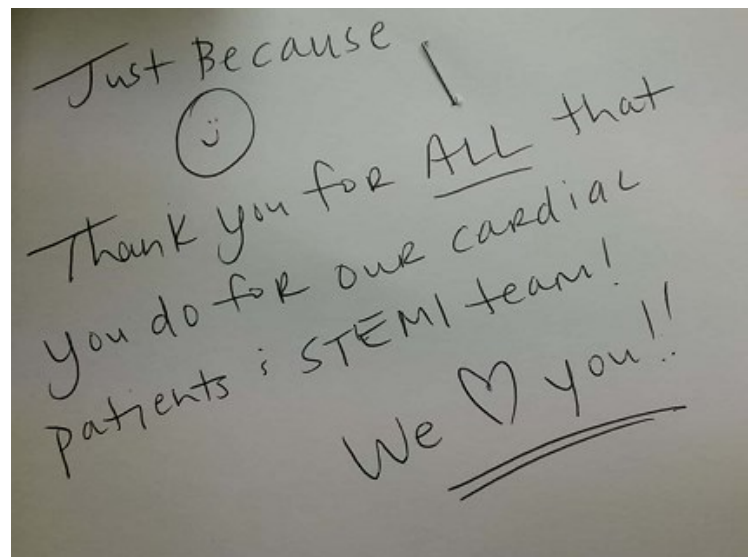 Just Because
Thank you for ALL that
you do for our cardiac
patients & STEMI team!
We ♡ you!!